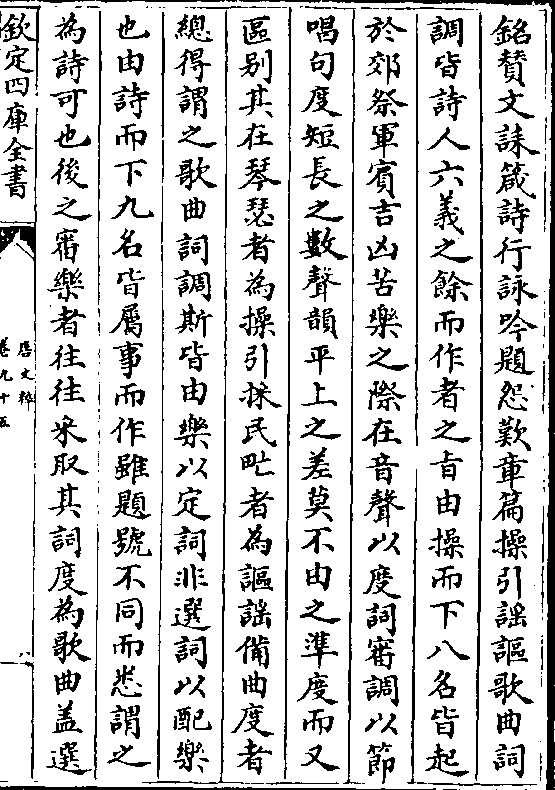 銘賛文誄箴詩行詠吟題怨歎章篇操引謡謳歌曲詞
調皆詩人六義之餘而作者之㫖由操而下八名皆起
於郊祭軍賓吉凶苦樂之際在音聲以度詞審調以節
唱句度短長之數聲韻平上之差莫不由之準度而又
區别其在琴瑟者為操引採民甿者為謳謡備曲度者
總得謂之歌曲詞調斯皆由樂以定詞非選詞以配樂
也由詩而下九名皆屬事而作雖題號不同而悉謂之
為詩可也後之審樂者往往采取其詞度為歌曲盖選
欽定四庫全書
唐文粹
卷九十五
八